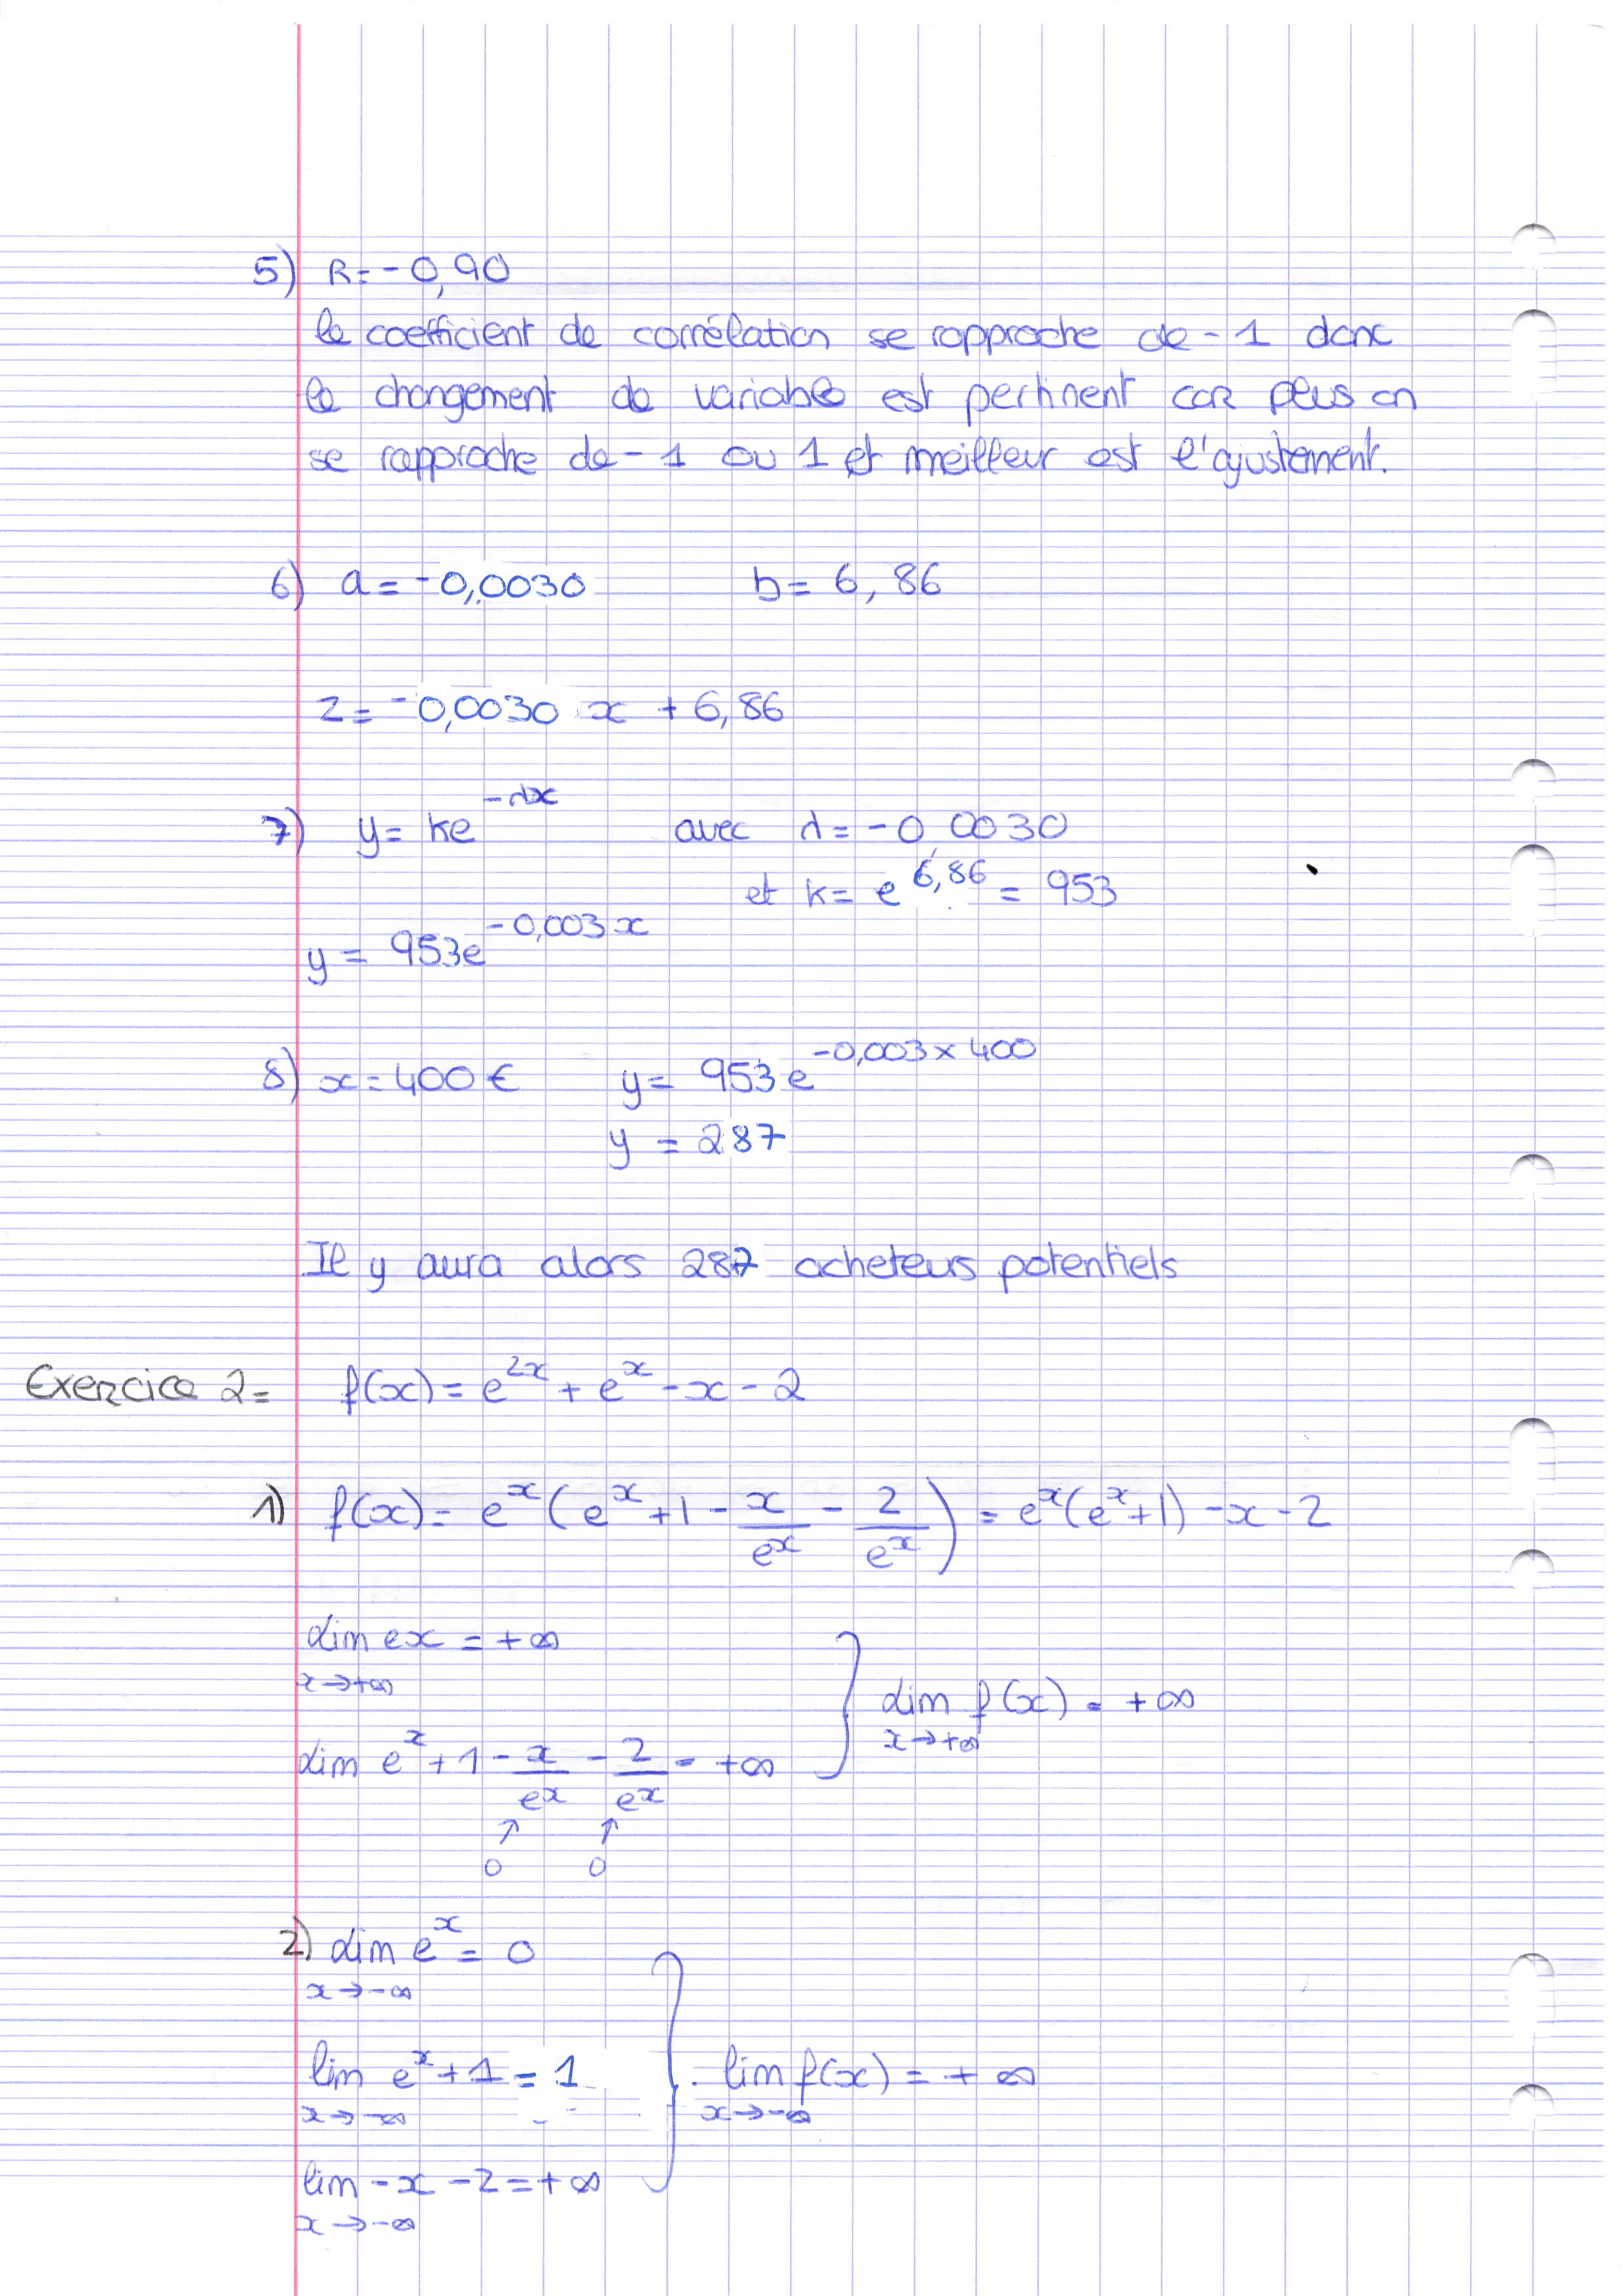 5) R = -0,90
le coefficient de corrélation se rapproche de -1 donc
le changement de variable est pertinent car plus on
se rapproche de -1 ou 1 et meilleur est l'ajustement.
6) a = -0,0030 b = 6,86
z = -0,0030 x + 6,86
7) y = ke^{-λx} avec λ = -0,0030
et k = e^{6,86} = 953
y = 953e^{-0,003x}
8) x = 400 € y = 953 e^{-0,003 × 400}
y = 287
Il y aura alors 287 acheteurs potentiels
Exercice 2 = f(x) = e^{2x} + e^x - x - 2
1) f(x) = e^x (e^x + 1 - x/e^x - 2/e^x) = e^x(e^x+1) - x - 2
lim ex = +∞
x→+∞
lim e^x + 1 - x/e^x - 2/e^x = +∞ } lim f(x) = +∞
x→+∞
↑ ↑
0 0
2) lim e^x = 0
x→-∞
lim e^x + 1 = 1 } lim f(x) = +∞
x→-∞ x→-∞
lim -x - 2 = +∞
x→-∞